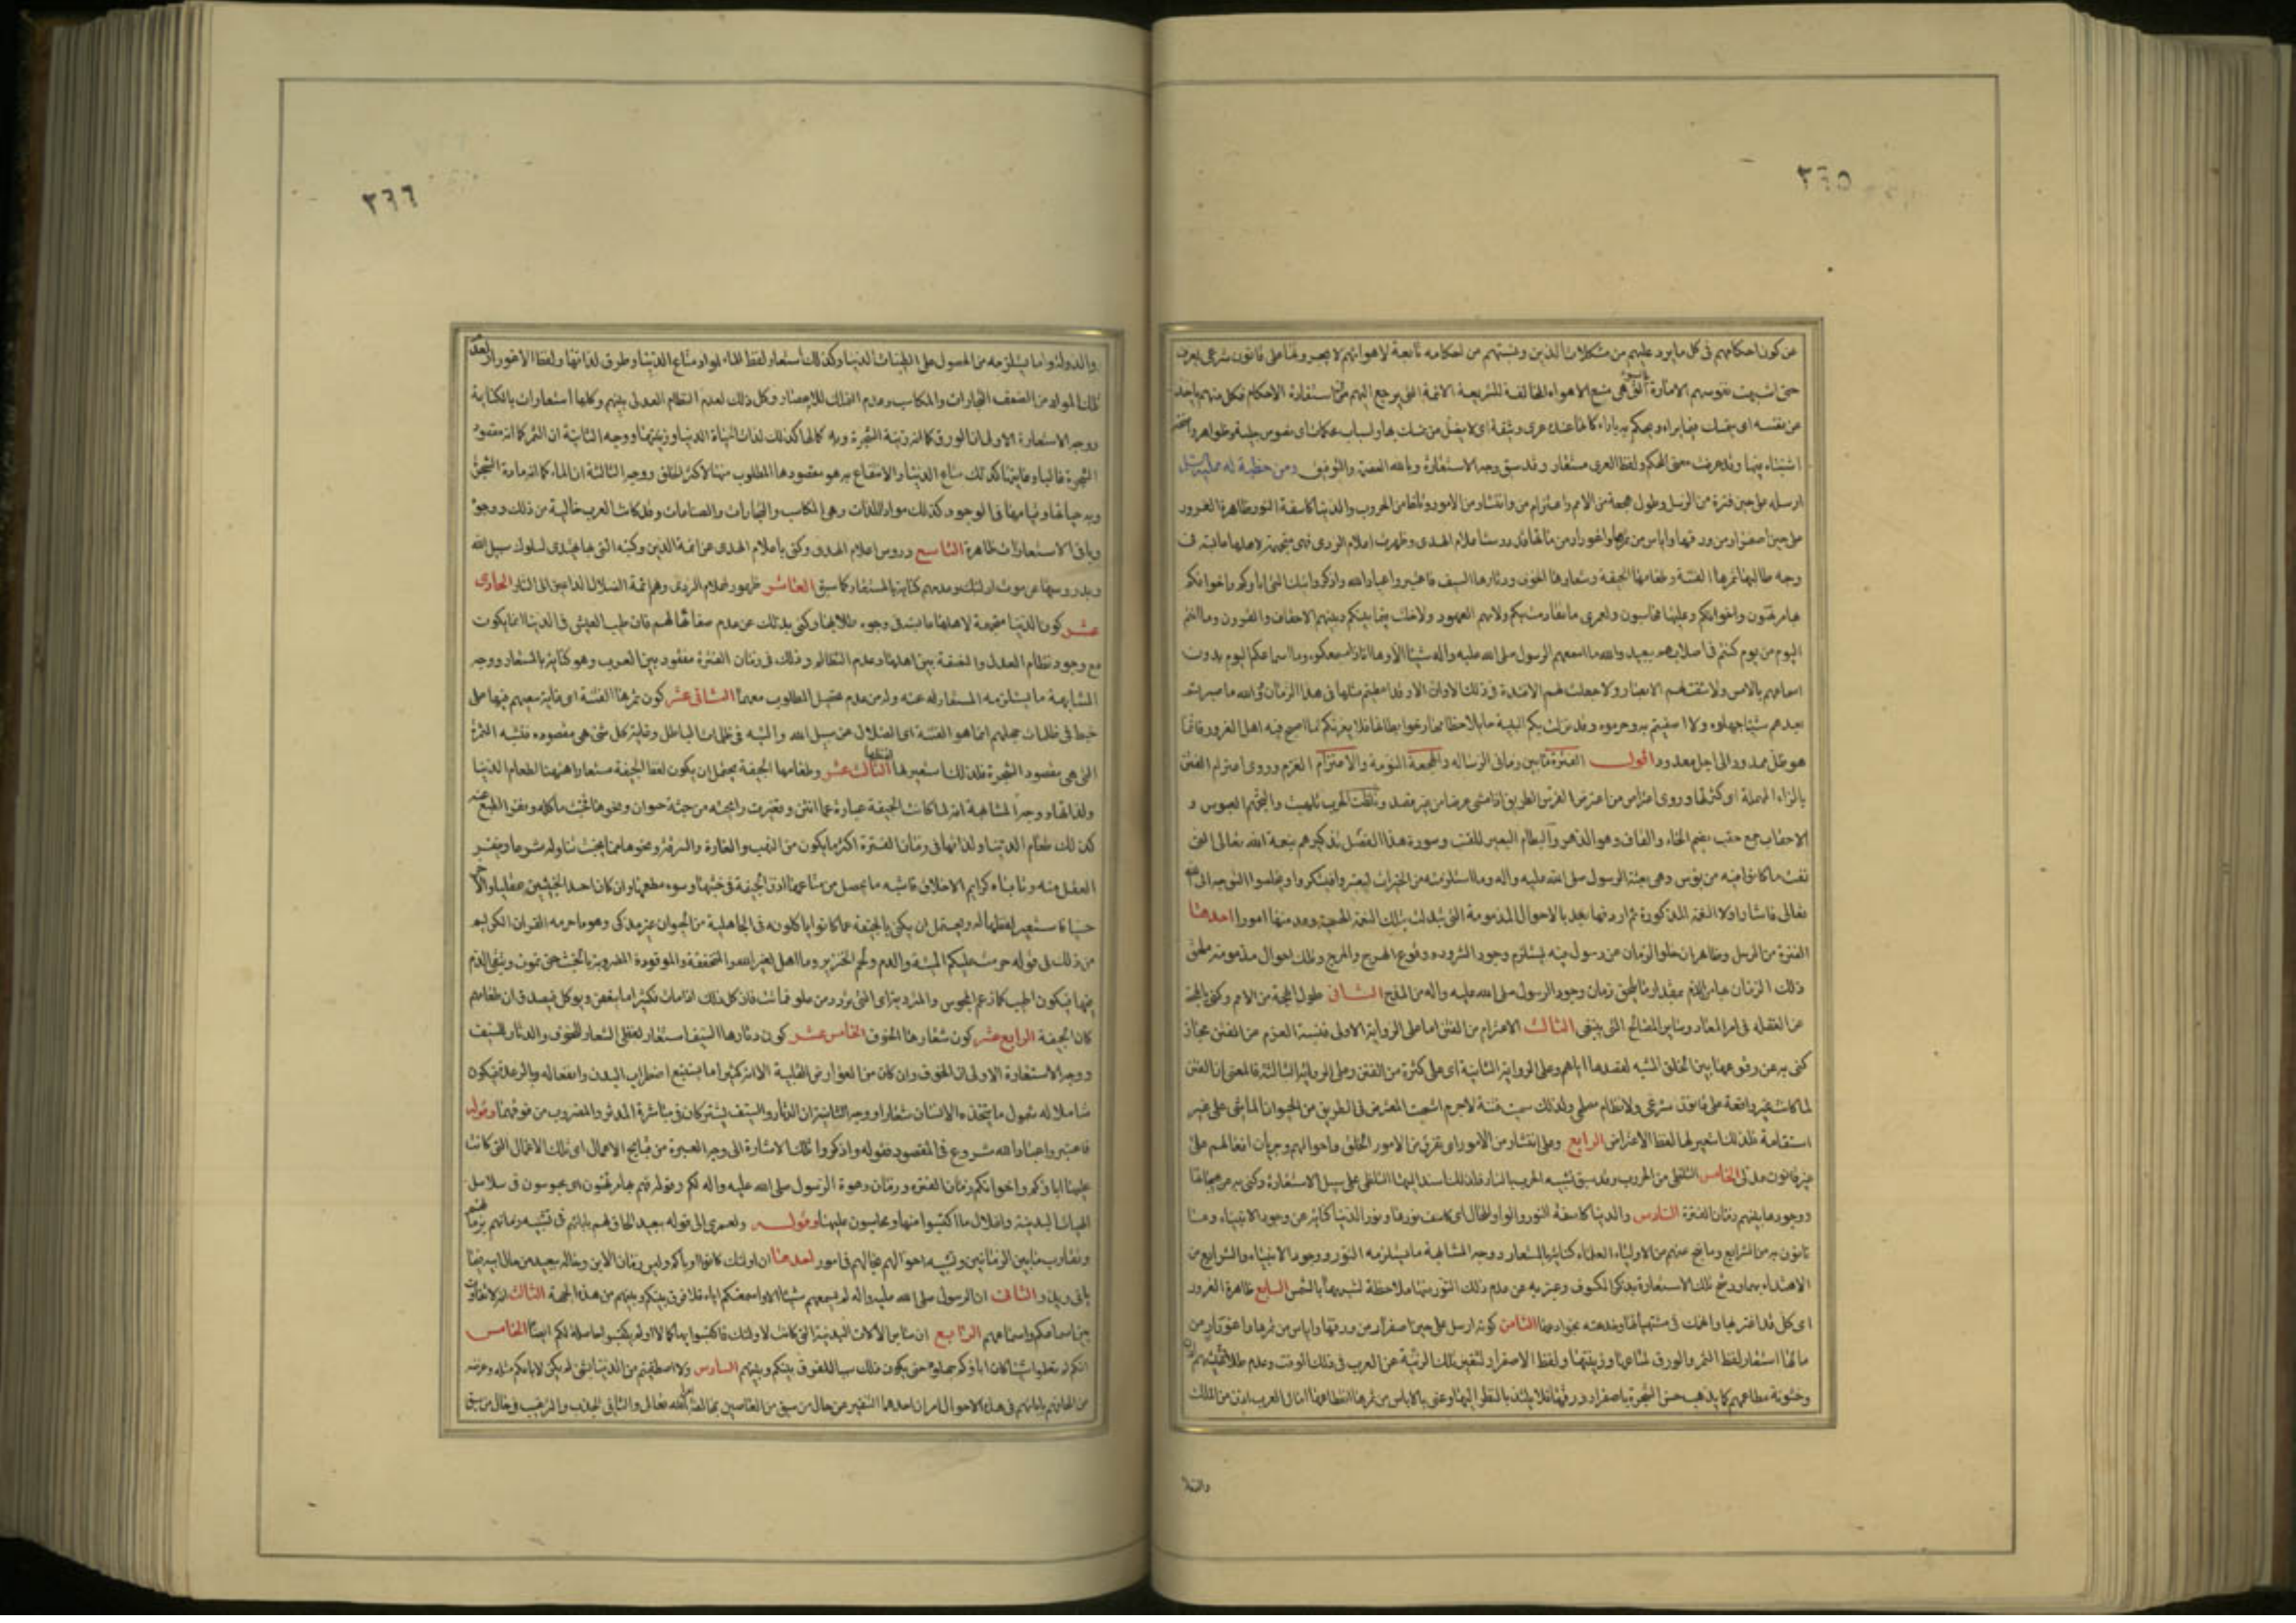 ٣٦٥
عن كون احكامهم فى كل ما يرد عليهم من مشكلات الدين ويشتبهم من احكامه تابعة لاهوائهم لا يجرونها على قانون شرعى يعرف
حتى اشبهت نفوسهم الامارة التى هى منبع الاهواء المخالفة للشريعة الائمة التى يرجع اليهم فى استفادة الاحكام فكل منهم ياخذ
عن نفسه اى يتمسك فيما يراه ويحكم به باراء كانها عنده عرى وثيقة اى لا يضل من تمسك بها واسباب محكمات اى نصوص جلية وظواهر واضحة
اشتباه فيها وقد عرفت معنى المحكم ولفظ العرى مستعار وقد سبق وجه الاستعارة وبالله العصمة والتوفيق ومن خطبة له عليه السلام
ارسله على حين فترة من الرسل وطول هجعة من الامم واعتزام من وانتشار من الامور وتلظ من الحروب والدنيا كاسفة النور ظاهرة الغرور
على حين اصفرار من ورقها واياس من ثمرها واغورار من مائها قد درست اعلام الهدى وظهرت اعلام الردى فهى متجهمة لاهلها عابسة فى
وجه طالبها ثمرها الفتنة وطعامها الجيفة وشعارها الخوف ودثارها السيف فاعتبروا عباد الله واذكروا تيك التى اباؤكم واخوانكم
بها مرتهنون واخوانكم وعليها محاسبون ولعمرى ما تقادمت بكم ولا بهم العهود ولا خلت فيما بينكم وبينهم الاحقاب والقرون وما انتم
اليوم من يوم كنتم فى اصلابهم ببعيد والله ما اسمعهم الرسول صلى الله عليه واله شيئا الا وها انا ذا اسمعكموه وما اسماعكم اليوم بدون
اسماعهم بالامس ولا شقت لهم الابصار ولا جعلت لهم الافئدة فى ذلك الاوان الا وقد اعطيتم مثلها فى هذا الزمان والله ما بصرتم
بعدهم شيئا جهلوه ولا اصفيتم به وحرموه وقد نزلت بكم البلية جايلا خطامها رخوا بطانها فلا يغرنكم ما اصبح فيه اهل الغرور فانما
هو ظل ممدود الى اجل معدود اقول الفترة ما بين زمانى الرسالة والهجعة النومة والاعتزام العزم وروى اعترام الفتن
بالراء المهملة اى كثرتها وروى اعتراض من اعترض الفرس الطريق اذا مشى عرضا من غير قصد وتلظت الحرب تلهبت والتجهم العبوس و
الاحقاب جمع حقب بضم الحاء والقاف وهو الدهر والبطان البعير للقتب وسورة هذا الفصل تذكيرهم بنعمة الله تعالى التى
نفت ما كانوا فيه من بؤس وهى بعثة الرسول صلى الله عليه واله وما استلزمته من الخيرات ليعتبروا فيشكروا ويخلصوا التوجه الى الله
تعالى فاشار اولا النعمة المذكورة ثم اردفها بعد بالاحوال المذمومة التى تبدلت بتلك النعمة الجسيمة وعد منها امورا احدها
الفترة من الرسل وظاهر ان خلو الزمان عن رسول فيه يستلزم وجود الشرور ووقوع الهرج والمرج وتلك احوال مذمومة تلحق
ذلك الزمان بها من الذم بمقدار ما يلحق زمان وجود الرسول صلى الله عليه واله من المدح الثانى طول الهجعة من الامم وكنى بالهجعة
عن الغفلة فى امر المعاد وساير المصالح التى ينبغى الثالث الاعتزام من الفتن اما على الرواية الاولى فنسبة العزم من الفتن مجاز
كنى به عن وقوعها بين الخلق المشبه لقصدها اياهم وعلى الرواية الثانية اى على كثرة من الفتن وعلى الرواية الثالثة فالمعنى ان الفتن
لما كانت غير واقعة على قانون شرعى ولا نظام مصلحى ولذلك سميت فتنة لاجرم اشبهت المعترض فى الطريق من الحيوان الماشى على غير
استقامة فلذلك استعير لها لفظ الاعتراض الرابع وعلى انتشار من الامور اى تفرق من الامور الخلق واحوالهم وجريان افعالهم على
غير قانون عدلى الخامس التلظى من الحروب وقد سبق تشبيه الحرب بالنار فلذلك اسند اليها التلظى على سبيل الاستعارة وكنى به عن هيجانها
ووجودها بينهم زمان الفترة السادس والدنيا كاسفة النور والواو للحال اى كاسف نورها ونور الدنيا كناية عن وجود الانبياء وما
ياتون به من الشرايع وما ينتج عنهم من الاولياء العلماء كناية بالمستعار ووجه المشابهة ما يستلزمه النور ووجود الانبياء والشرايع من
الاهتداء بهما ورشح تلك الاستعارة بذكر الكسوف وعبر به عن عدم ذلك النور منها ملاحظة لشبهها بالشمس السابع ظاهرة الغرور
اى كل قد اغتر بها وانهمك فى مشتهياتها وخدعته بخوادعها الثامن كونه ارسل على حين اصفرار من ورقها واياس من ثمرها واغورار من
مائها استعار لفظ الثمر والورق لمتاعها وزينتها ولفظ الاصفرار لتغير تلك الزينة عن العرب فى ذلك الوقت وعدم طلاوة عيشهم
وخشونة مطاعمهم كما يذهب حسن الشجرة باصفرار ورقها فلا يلتذ بالنظر اليها وعنى بالاياس من ثمرها انقطاع امال العرب اذن من الملك
والدولة
٣٦٦
والدولة وما يستلزمه من الحصول على طيبات الدنيا وكذلك استعار لفظ الماء لمواد متاع الدنيا وطرق لذاتها ولفظ الاغورار لعدم
تلك المواد من الضعف التجارات والمكاسب وعدم التملك للامصار وكل ذلك لعدم انتظام العدل بينهم وكلها استعارات بالكناية
ووجه الاستعارة الاولى ان الورق كما انه زينة الشجرة وبه كمالها كذلك لذات حياة الدنيا وزينتها ووجه الثانية ان الثمر كما انه مقصود
الشجرة غالبا وغايتها كذلك متاع الدنيا والانتفاع به هو مقصودها المطلوب منها لاكثر الخلق ووجه الثالثة ان الماء كما انه مادة الشجر
وبه حياتها وقيامها فى الوجود كذلك مواد اللذات وهى المكاسب والتجارات والصناعات وقد كانت العرب خالية من ذلك ووجوه
وباقى الاستعارات ظاهرة التاسع دروس اعلام الهدى وكنى باعلام الهدى عن ائمة الدين وكتبه التى بها يهتدى لسلوك سبيل الله
وبدروسها عن موت اولئك وعدمهم كناية بالمستعار كما سبق العاشر ظهور اعلام الردى وهم ائمة الضلال الداعين الى النار الحادى
عشر كون الدنيا متجهمة لاهلها عابسة فى وجوه طلابها وكنى بذلك عن عدم صفائها لهم فان طيب العيش فى الدنيا انما يكون
مع وجود نظام العدل والنصفة بين اهلها وعدم التظالم وذلك فى زمان الفترة مفقود بين العرب وهو كناية بالمستعار ووجه
المشابهة ما يستلزمه المستعار له عنه وله من عدم تحصيل المطلوب معهما الثانى عشر كون ثمرها الفتنة اى غاية سعيهم فيها على
خبط فى ظلمات جهلهم انما هو الفتنة اى الضلال عن سبيل الله والتيه فى ظلمات الباطل وغاية كل شئ هى مقصوده فتشبه الثمرة
التى هى مقصود الشجرة فلذلك استعير لها لفظها الثالث عشر وطعامها الجيفة يحتمل ان يكون لفظ الجيفة مستعارا هيهنا لطعام الدنيا
ولذاتها ووجه المشابهة انه لما كانت الجيفة عبارة عما انتن وتغيرت رايحته من جثة حيوان ونحوها فخبث ماكله ونفر الطبع عنه
كذلك طعام الدنيا ولذاتها فى زمان الفترة اكثر ما يكون من النهب والغارة والسرقة ونحوها مما يخبث تناوله شرعا وينفر
العقل منه وتاباه كرايم الاخلاق فاشبه ما يحصل من متاعها اذن الجيفة فى خبثها وسوء مطعمها وان كان احد الخبيثين عقليا والاخر
حسيا فاستعير لفظها له ويحتمل ان يكنى بالجيفة عما كانوا ياكلونه فى الجاهلية من الحيوان غير مذكى وهو ما حرمه القران الكريم
من ذلك فى قوله حرمت عليكم الميتة والدم ولحم الخنزير وما اهل لغير الله به والمنخنقة والموقوذة المضروبة بالخشب حتى تموت ويبقى الدم
فيها فيكون اطيب كما زعم المجوس والمتردية اى التى تردت من علو فماتت فان كل ذلك اذا مات فكثيرا ما يتعفن ويوكل فيصدق ان طعامهم
كان الجيفة الرابع عشر كون شعارها الخوف الخامس عشر كون دثارها السيف استعار لفظى الشعار للخوف والدثار للسيف
ووجه الاستعارة الاولى ان الخوف وان كان من العوارض القلبية الا انه كثيرا ما يستتبع اضطراب البدن وانفعاله وبالرعدة فيكون
شاملا له شمول ما يتخذه الانسان شعارا ووجه الثانية ان الدثار والسيف يشتركان فى مباشرة المدثر والمضروب من فوقهما وقوله
فاعتبروا عباد الله شروع فى المقصود فقوله واذكروا تلك الاشارة الى وجه العبرة من قبايح الاعمال اى تلك الاعمال التى كانت
عليها اباؤكم واخوانكم زمان الفترة وزمان دعوة الرسول صلى الله عليه واله لكم وقوله فهم بها مرتهنون اى محبوسون فى سلاسل
الهيئات البدنية واغلال ما اكتسبوا منها ومحاسبون عليها وقوله ولعمرى الى قوله ببعيد الحاق لهم بابائهم فى تشبيه زمانهم بزمانهم
وتقارب ما بين الزمانين وتشبيه احوالهم بحالهم فى امور احدها ان اولئك كانوا اباءكم وليس زمان الابن وحاله ببعيد من حال ابيه فيما
ياتى ويذر والثانى ان الرسول صلى الله عليه واله لم يسمعهم شيئا الا واسمعتكم اياه فلا فرق بينكم وبينهم من هذه الجهة الثالث انه لا تفاوت
بين اسماعكم واسماعهم الرابع ان ساير الالات البدنية التى كانت لاولئك فاكتسبوا بها كمالا او لم يكتسبوا حاصلة لكم ايضا الخامس
انكم لم تعلموا شيئا كان اباؤكم جهلوه حتى يكون ذلك سببا للفرق بينكم وبينهم السادس ولا اصطفيتم من الدنيا بشئ لم يكن لابائكم مثله وغرضه
من الحاقهم بابائهم فى هذه الاحوال امران احدهما التنفير عن حال من سبق من العاصين بمخالفة امر الله تعالى والثانى الجذب والترغيب فى حال من سبق